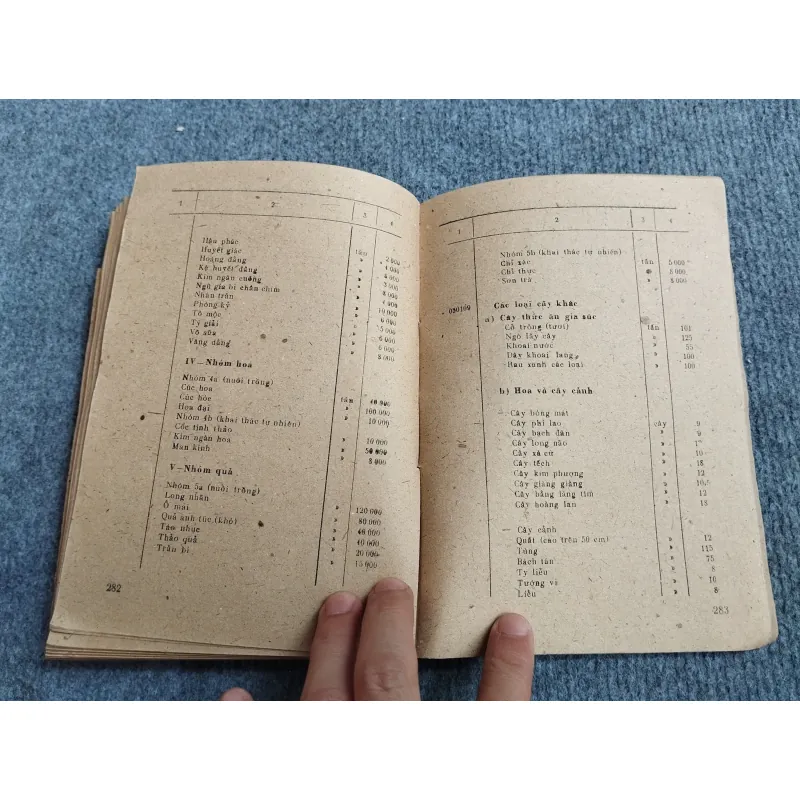 1 2 3 4
Hậu phác
Huyết giác tấn 2 000
Hoàng đằng » 4 000
Kê huyết đằng » 4 000
Kim ngân cuộng » 3 000
Ngũ gia bì chân chim » 8 000
Nhân trần » 4 000
Phòng kỷ » 10 000
Tô mộc » 6 000
Tỳ giải » 5 000
Vỏ sữa » 6 000
Vàng đằng » 6 000
8 000
IV — Nhóm hoa
Nhóm 4a (nuôi trồng)
Cúc hoa tấn 40 000
Cúc hòe » 100 000
Hoa đại » 10 000
Nhóm 4b (khai thác tự nhiên)
Cốc tinh thảo » 10 000
Kim ngân hoa » 50 000
Mạn kinh » 8 000
V — Nhóm quả
Nhóm 5a (nuôi trồng)
Long nhãn » 120 000
Ô mai » 80 000
Quả anh túc (khô) » 40 000
Táo nhục » 40 000
Thảo quả » 20 000
Trần bì » 15 000
282
1 2 3 4
Nhóm 5b (khai thác tự nhiên)
Chỉ xác tấn 5 000
Chỉ thực » 8 000
Sơn tra » 4 000
030109 Các loại cây khác
a) Cây thức ăn gia súc
Cỏ trồng (tươi) tấn 101
Ngô lấy cây » 125
Khoai nước » 55
Dây khoai lang » 100
Rau xanh các loại » 100
b) Hoa và cây cảnh
— Cây bóng mát
Cây phi lao cây 9
Cây bạch đàn » 9
Cây long não »
Cây xà cừ » 10
Cây tếch » 18
Cây kim phượng » 12
Cây giáng giáng » 10,5
Cây bằng lăng tím » 12
Cây hoàng lan » 18
— Cây cảnh
Quất (cao trên 50 cm) » 12
Tùng » 115
Bách tán » 75
Ty liễu » 8
Tường vi » 10
Liễu » 8
283